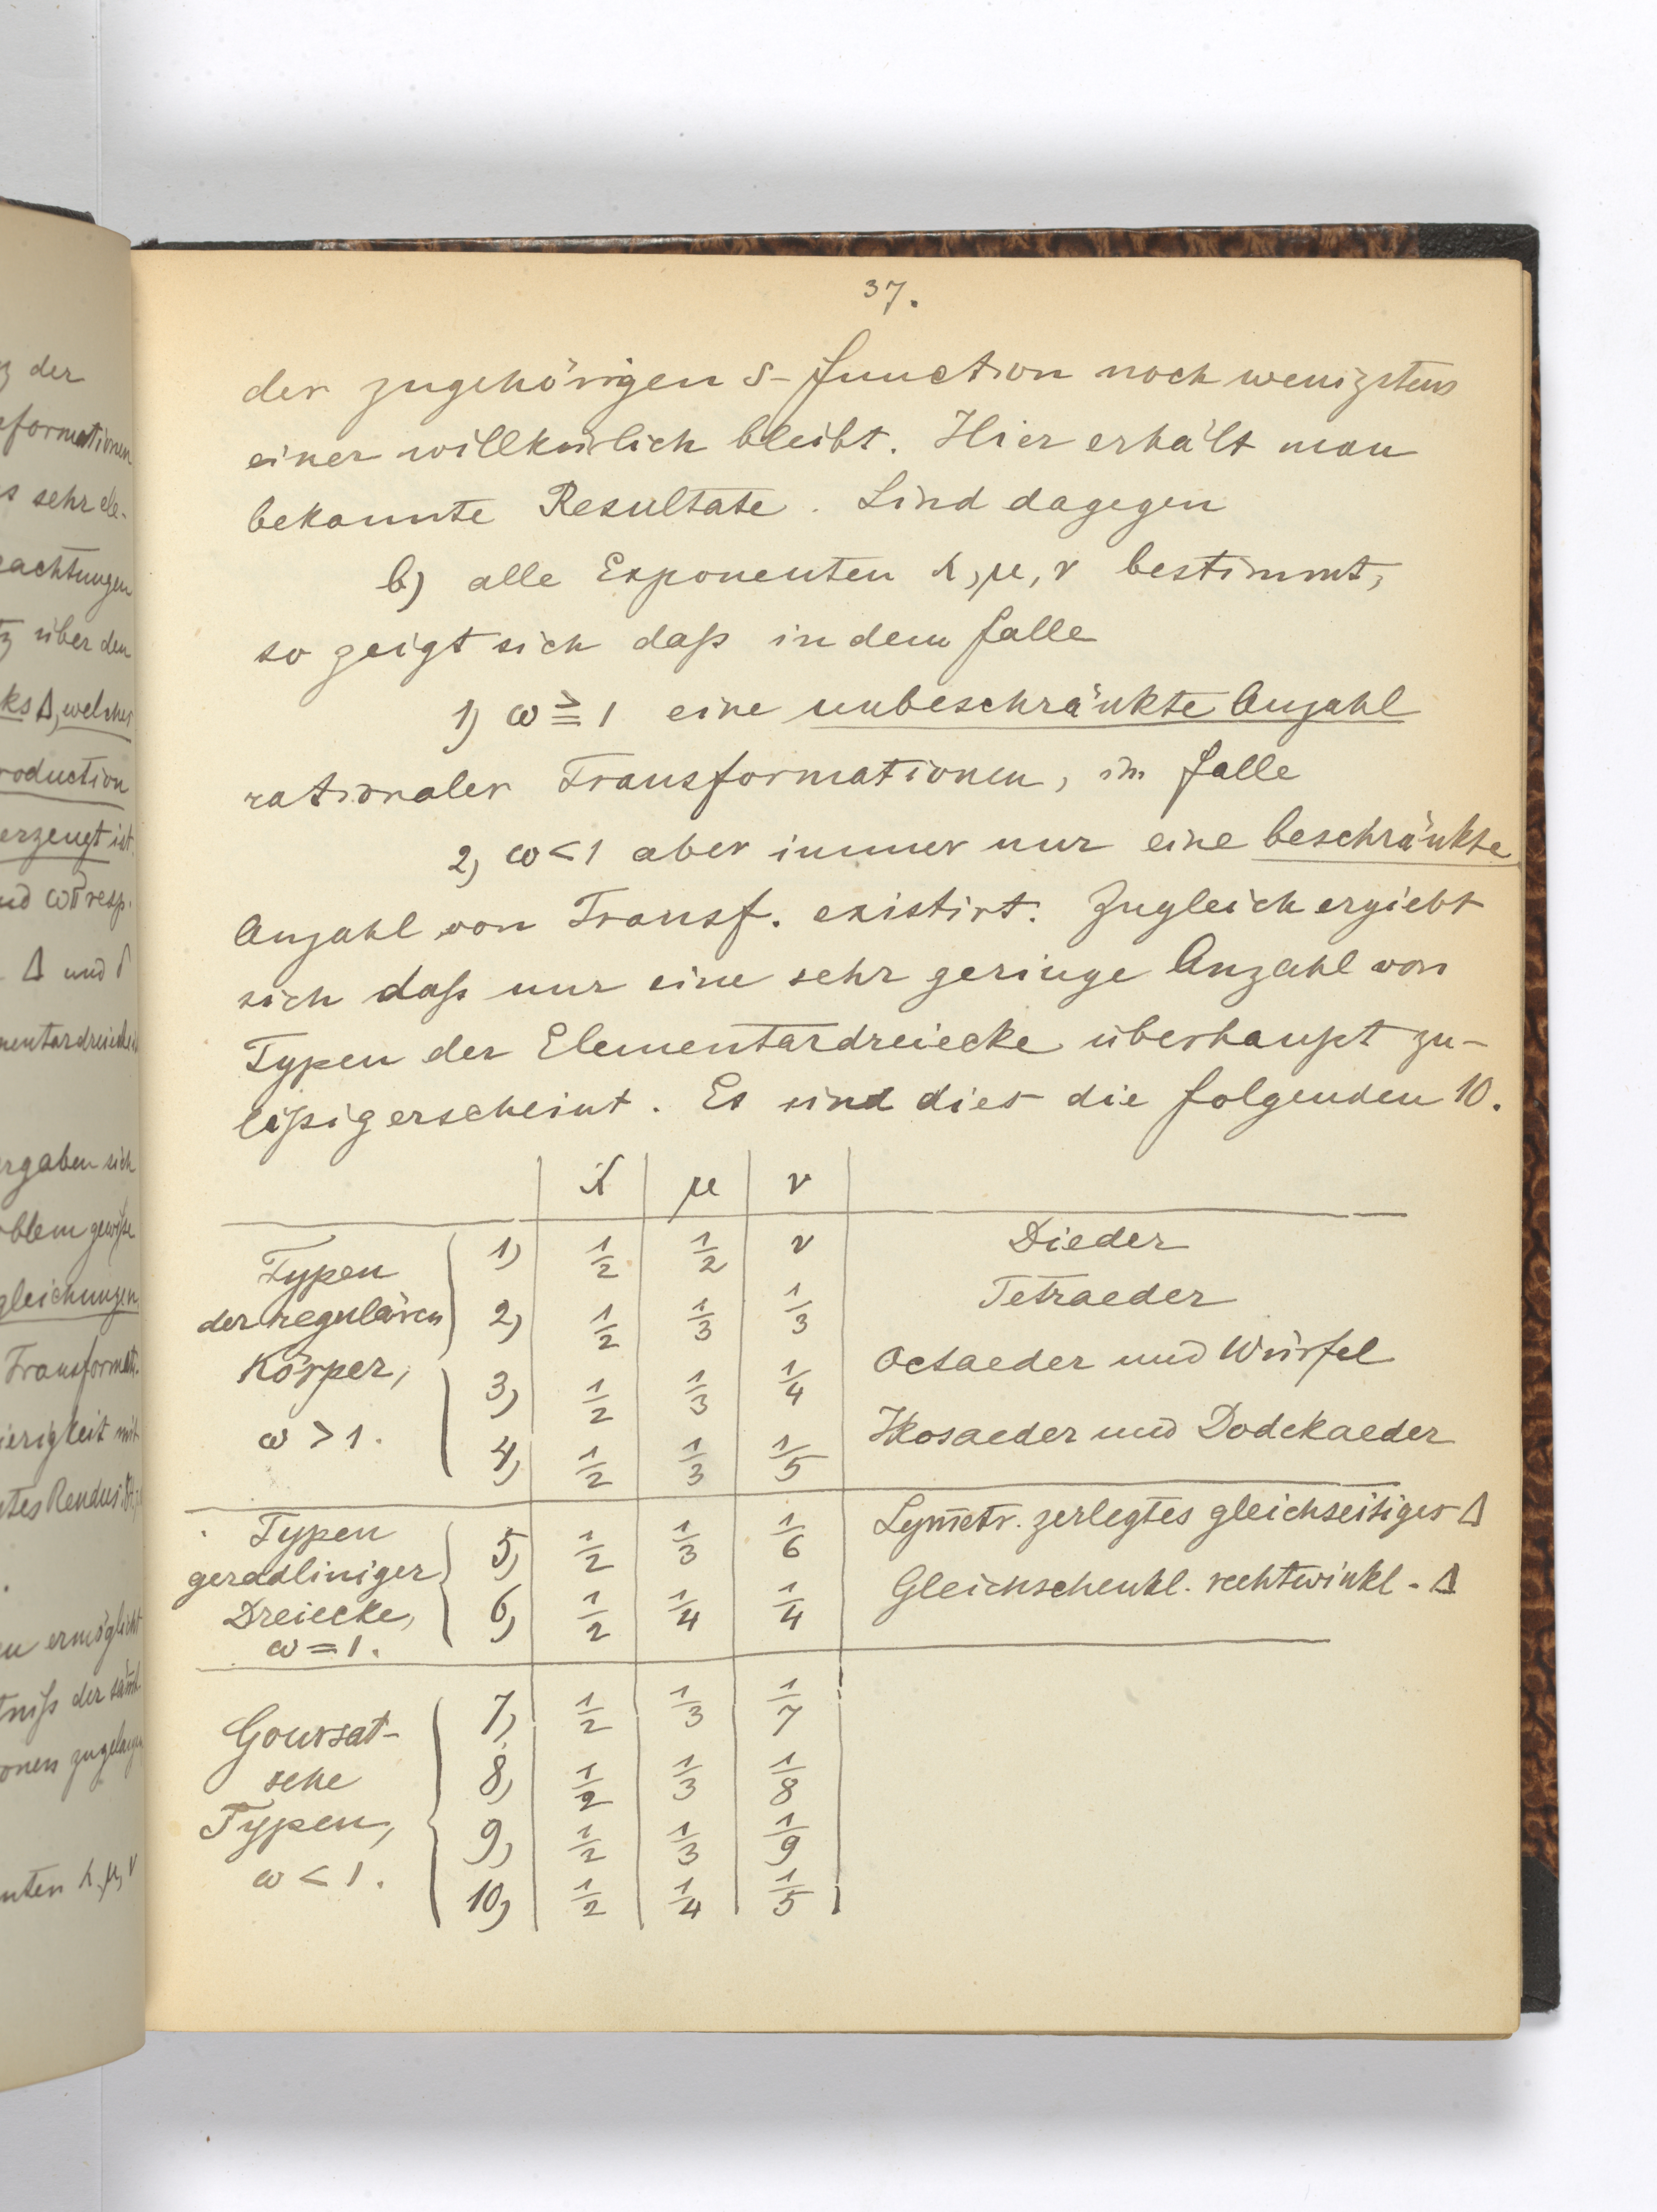 37.
der zugehörigen s-Function noch wenigstens
einer willkürlich bleibt. Hier erhält man
bekannte Resultate. Sind dagegen
b) alle Exponenten λ, μ, ν bestimmt,
so zeigt sich daß in dem Falle
1) ω ≧ 1 eine unbeschränkte Anzahl
rationaler Transformationen, im Falle
2) ω < 1 aber immer nur eine beschränkte
Anzahl von Transf. existirt. Zugleich ergiebt
sich daß nur eine sehr geringe Anzahl von
Typen der Elementardreiecke überhaupt zu-
läßig erscheint. Es sind dies die folgenden 10.
λ μ ν
Typen der regulären Körper, ω > 1.
1) 1/2 1/2 ν Dieder
2) 1/2 1/3 1/3 Tetraeder
3) 1/2 1/3 1/4 Octaeder und Würfel
4) 1/2 1/3 1/5 Ikosaeder und Dodekaeder
Typen geradliniger Dreiecke, ω = 1.
5) 1/2 1/3 1/6 Sym̅etr. zerlegtes gleichseitiges Δ
6) 1/2 1/4 1/4 Gleichschenkl. rechtwinkl. Δ
Goursat-
sche
Typen,
ω < 1.
7) 1/2 1/3 1/7
8) 1/2 1/3 1/8
9) 1/2 1/3 1/9
10) 1/2 1/4 1/5
der
sehr ele-
über den
Δ, welches
erzeugt ist.
und ωπ resp.
Δ und
ergaben sich
gleichungen
Transformat.
ermöglicht
λ, μ, ν